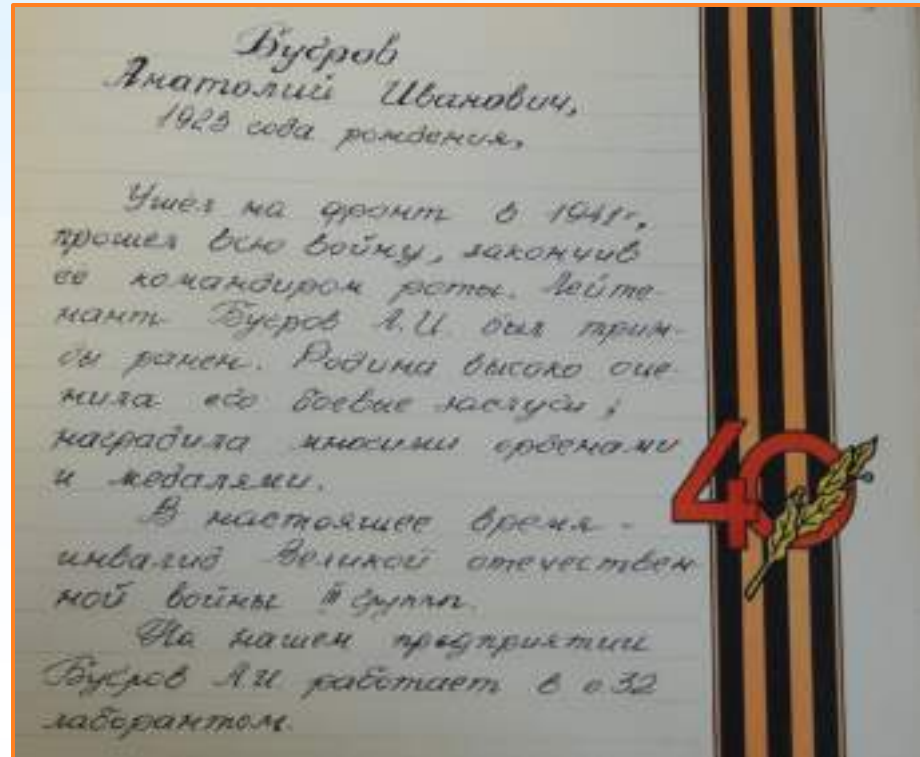 Бугров
Анатолий Иванович,
1923 года рождения,
Ушел на фронт в 1941г,
прошел всю войну, закончив
ее командиром роты. Лейте-
нант Бугров А.И. был триж-
ды ранен. Родина высоко оце-
нила его боевые заслуги,
наградила многими орденами
и медалями.
В настоящее время -
инвалид Великой отечествен-
ной войны III групп.
На нашем предприятии
Бугров А.И работает в о.32
лаборантом.
40